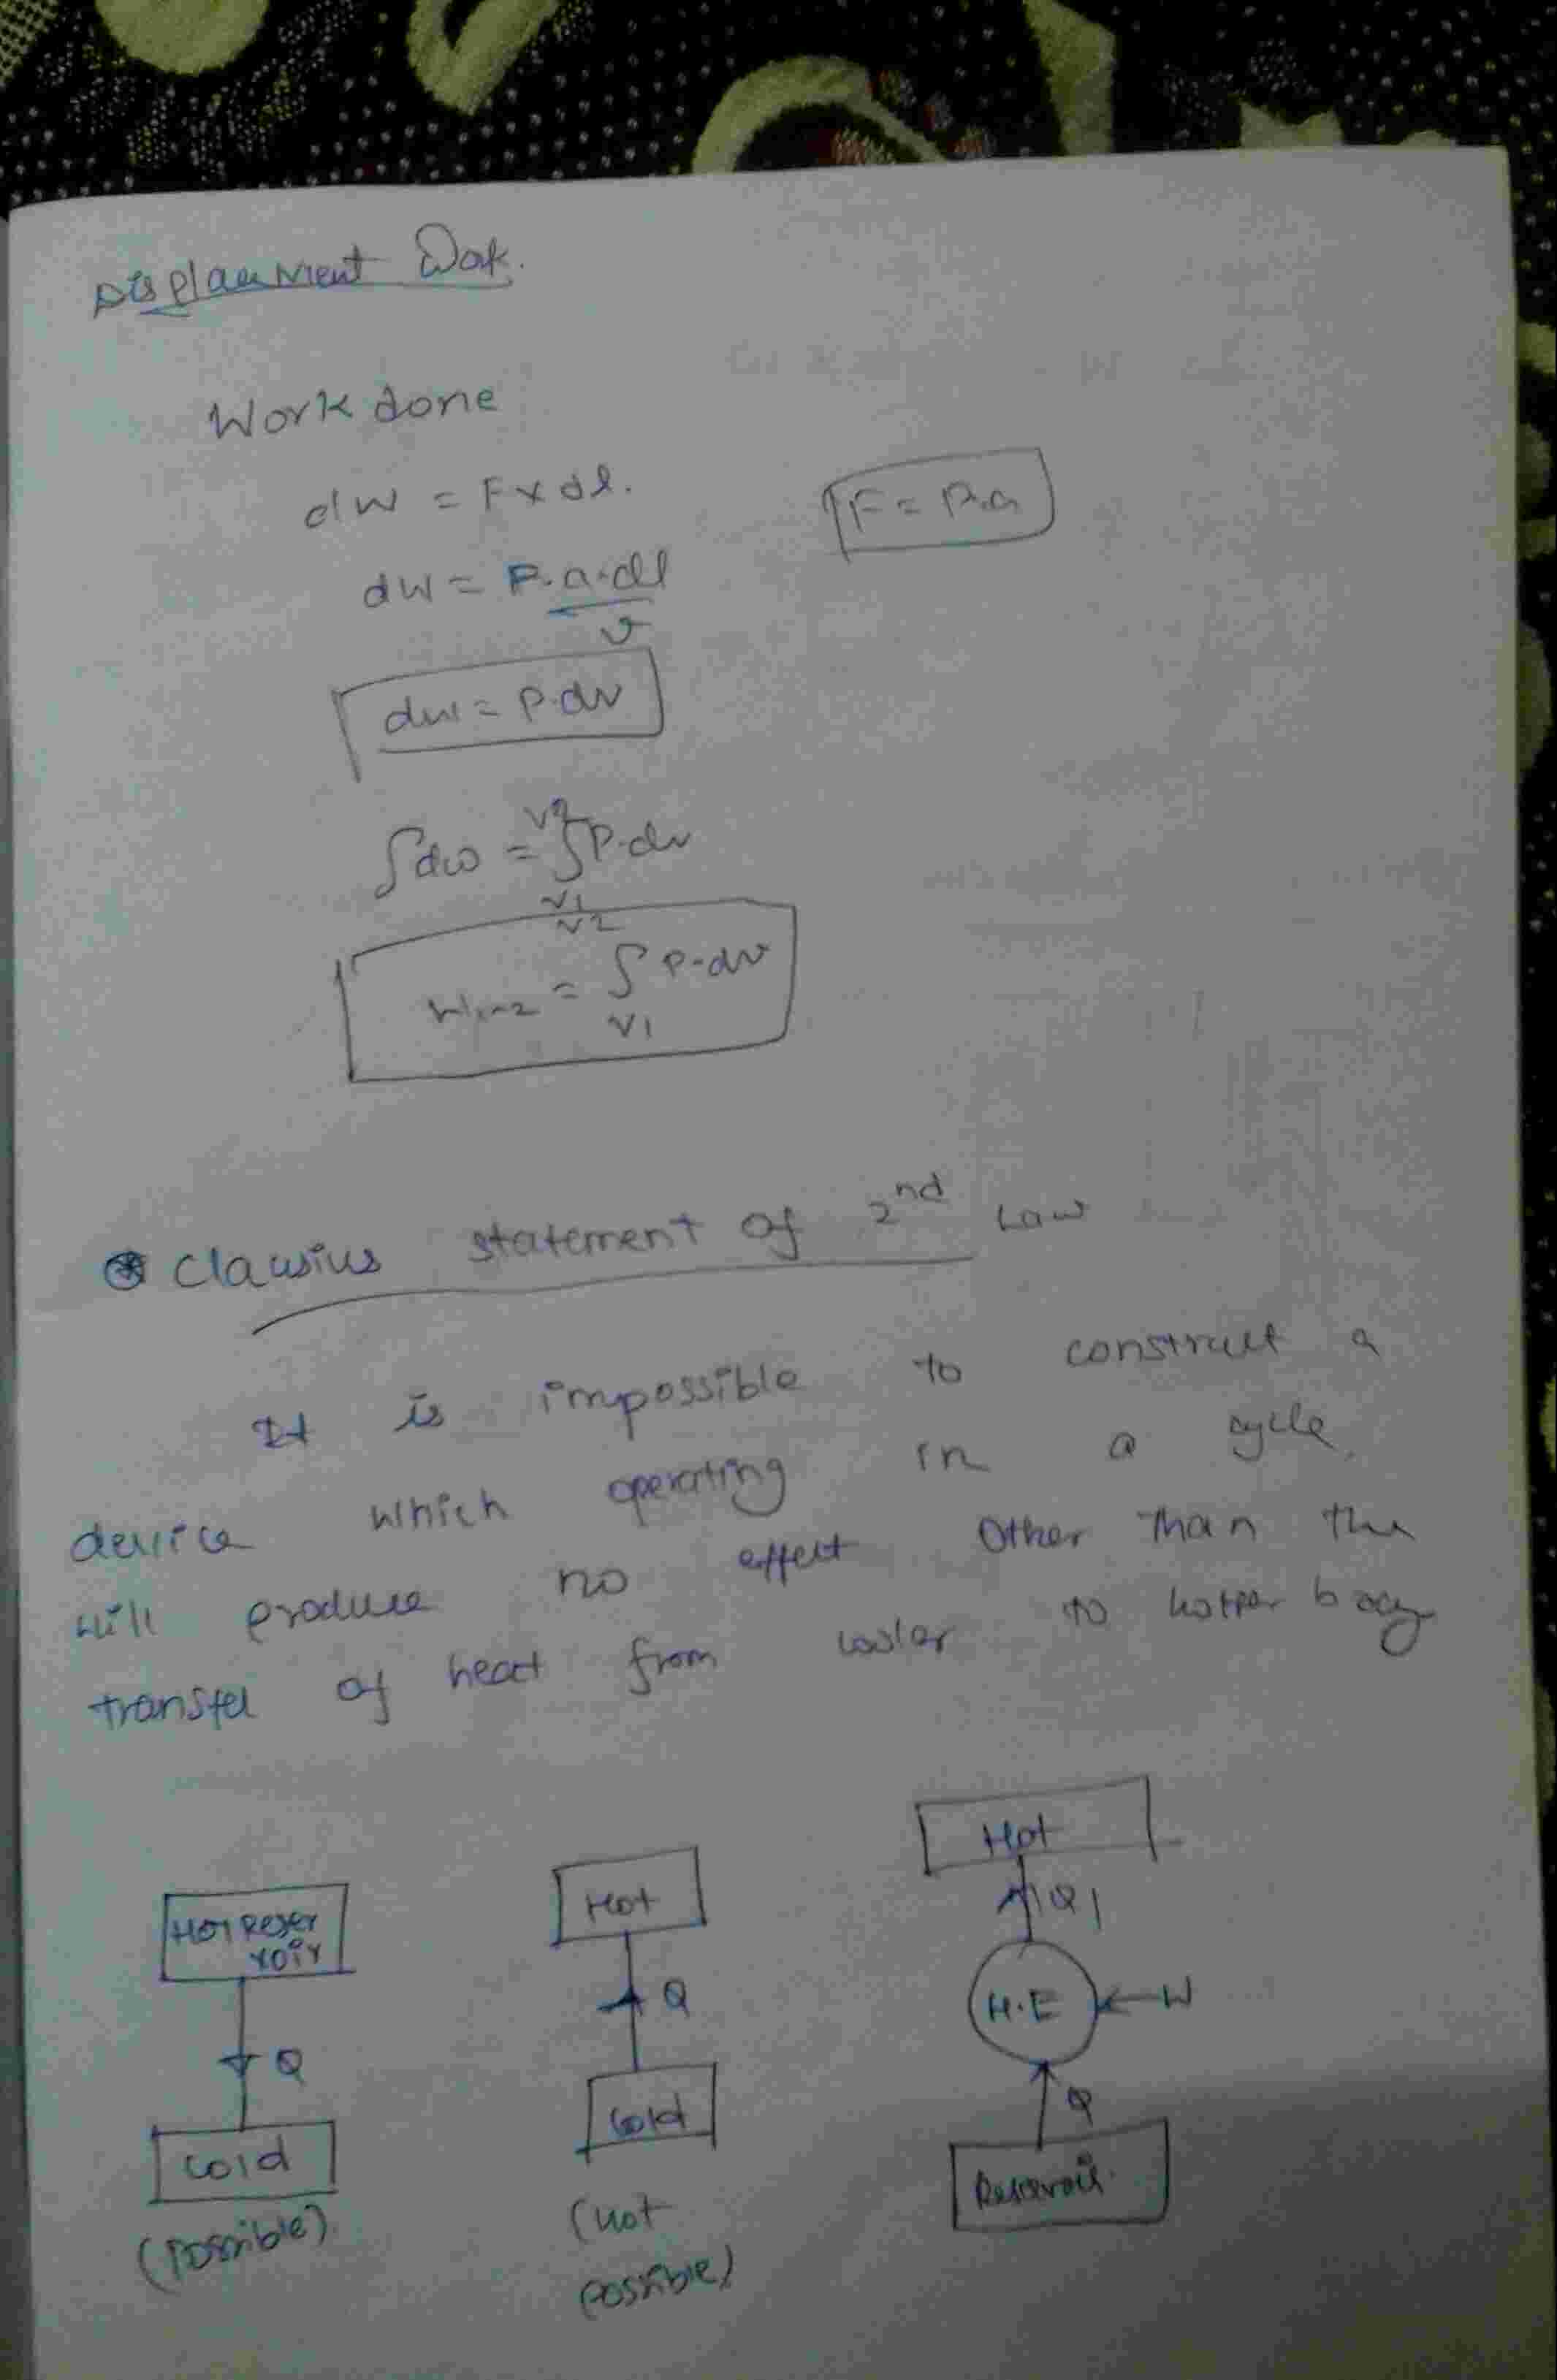 Displacement Work.
Work done
dW = F x dl.
F = P.a
dW = P.a.dl
v
dw = P.dv
∫dw = v2∫v1 P.dv
W1-2 = v2∫v1 P-dv
Clausius statement of 2nd Law
It is impossible to construct a
device which operating in a cycle,
will produce no effect other than the
transfer of heat from cooler to hotter body
Hot Reser
voir
Q
Cold
(Possible)
Hot
Q
Cold
(not
possible)
Hot
Q1
H.E
W
Q
Reservoir.